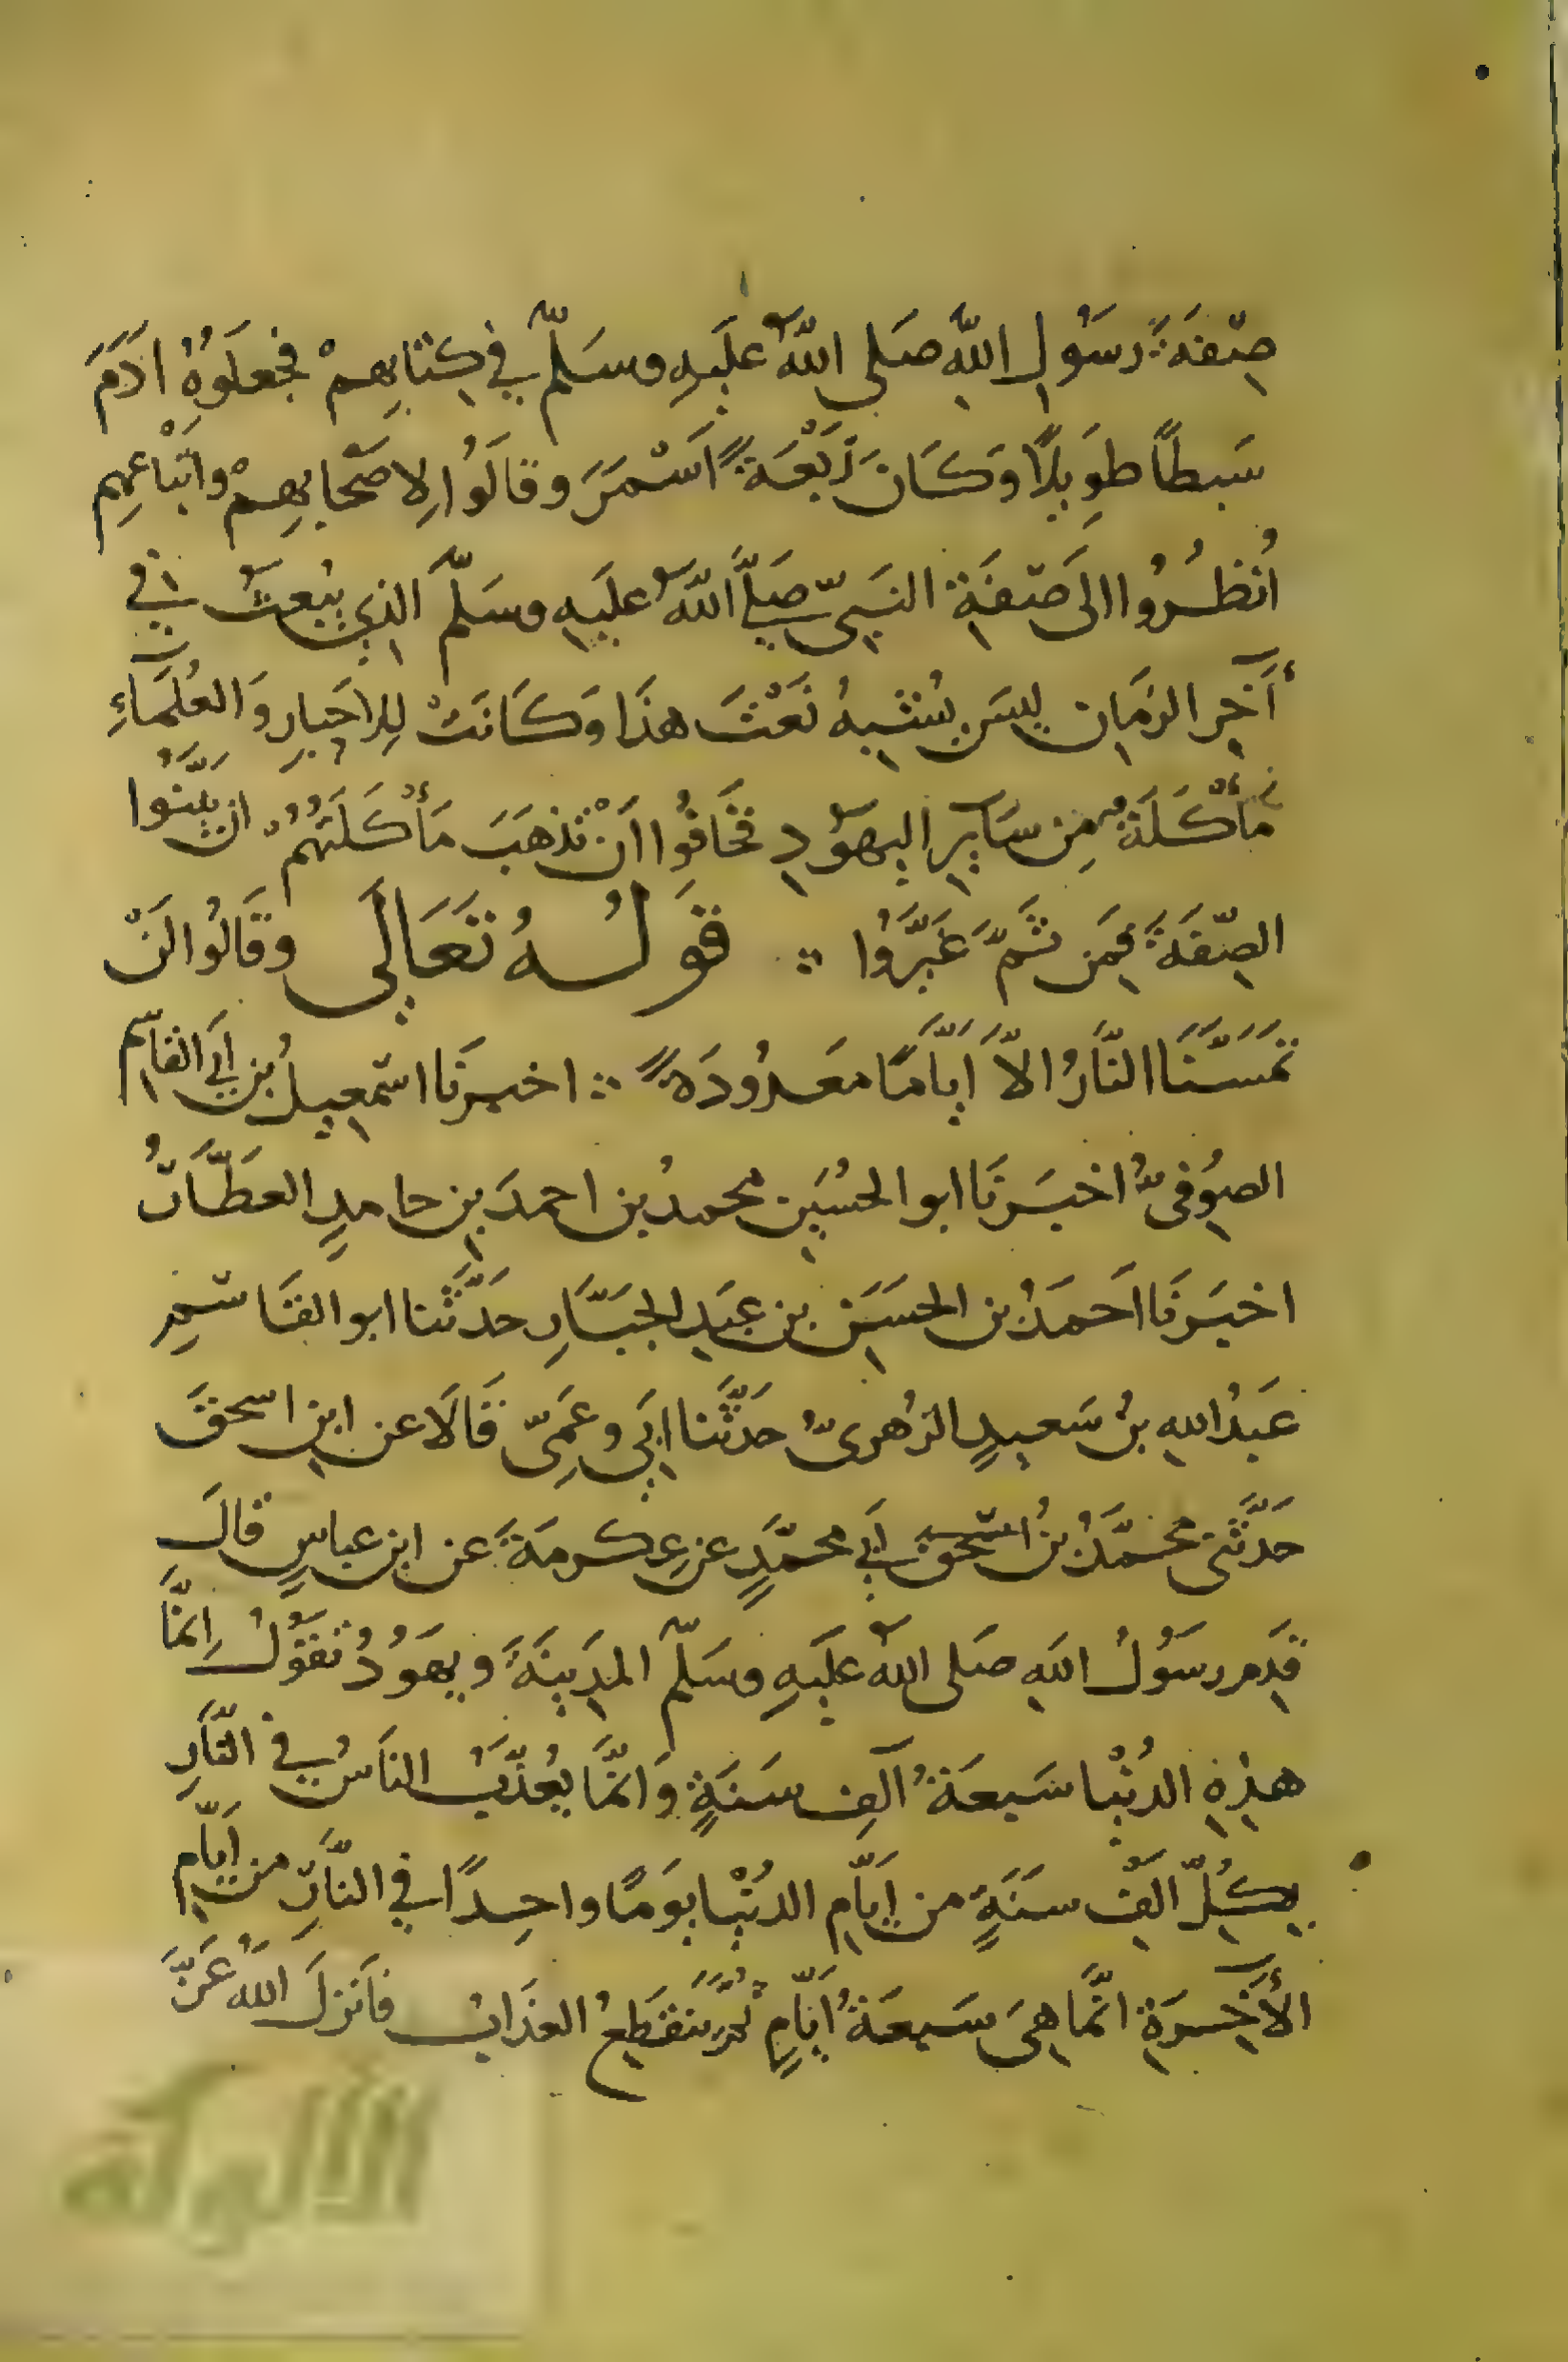 صِفَةَ رَسُولِ اللهِ صَلى اللهُ عَلَيهِ وسَلّم فِي كِتَابِهِمْ فجعَلَوهُ ادَمَ
سَبطاً طوِيلًا وَكَانَ رَبْعَةً اَسْمَرَ وقالَوُا لِاصَحابِهِمْ واَتْبَاعِهِم
اُنظُرُوا الىَ صِفَةِ النَبِىّ صَلَّى اللهُ عليَهِ وسَلّمَ الذِي يُبعَثُ في
آخِرِ الزمَانِ ليسَ يُشبِهُ نَعْتَ هذَا وَكَانَتْ لِلاحَبارِ وَالعُلَمَاءِ
مَأْكَلَةٌ مِن سَايِرِ اليهَوُدِ فخَافُوا اَنْ تذهَبَ مَأْكَلَتُهُمْ ان بيَّنُوا
الصِفَةَ فمَن ثَمَّ غَيَّرُوا قَولُهُ تَعَالَى وقَالُوا لَنْ
تمَسَّنَا النَّارُ الاّ اَيَّامًا مَعدُودَةً اخبرَنَا اسمعِيلُ بن اَبي القاسِم
الصوُفىُّ اخبَرنَا ابو الحسُيَن محمدُ بن احمدَ بنِ حامدٍ العطَّارُ
اخبَرنَا اَحمَدُ بن الحسَنِ بن عبَدِ الجبَّارِ حدَّثَنا ابو القَاسمِ
عَبدُ اللهِ بنُ سَعيدٍ الزهُرىُّ حدَّثَنا ابَي وعَمِىّ قَالَا عن ابنِ اسحقَ
حَدَّثنَى محمَّدُ بنُ اسحق اَبي محمَّدٍ عن عِكرمَةَ عن ابن عباسٍ قالَ
قَدِم رسَوُلُ اللهِ صَلى اللهُ عليَهِ وسَلّم المدِينَةَ ويهَوُدُ تقوُلُ اِنمَّا
هذِهِ الدُنْيا سَبعَةُ آلَفِ سَنَةٍ وَانمَّا يُعذَّبُ النَاسُ في النَّارِ
بِكُلِّ الَفِ سَنَةٍ من ايَّامِ الدُنْيا يوَمًا واحِدًا في النَّارِ من اَيَّامِ
الأخِرَةِ انمَّا هِىَ سَبعَةُ ايَّامٍ ثُمَّ يَنقَطِعُ العذَابُ فاَنزلَ اللهُ عَزَّ
الألوكة